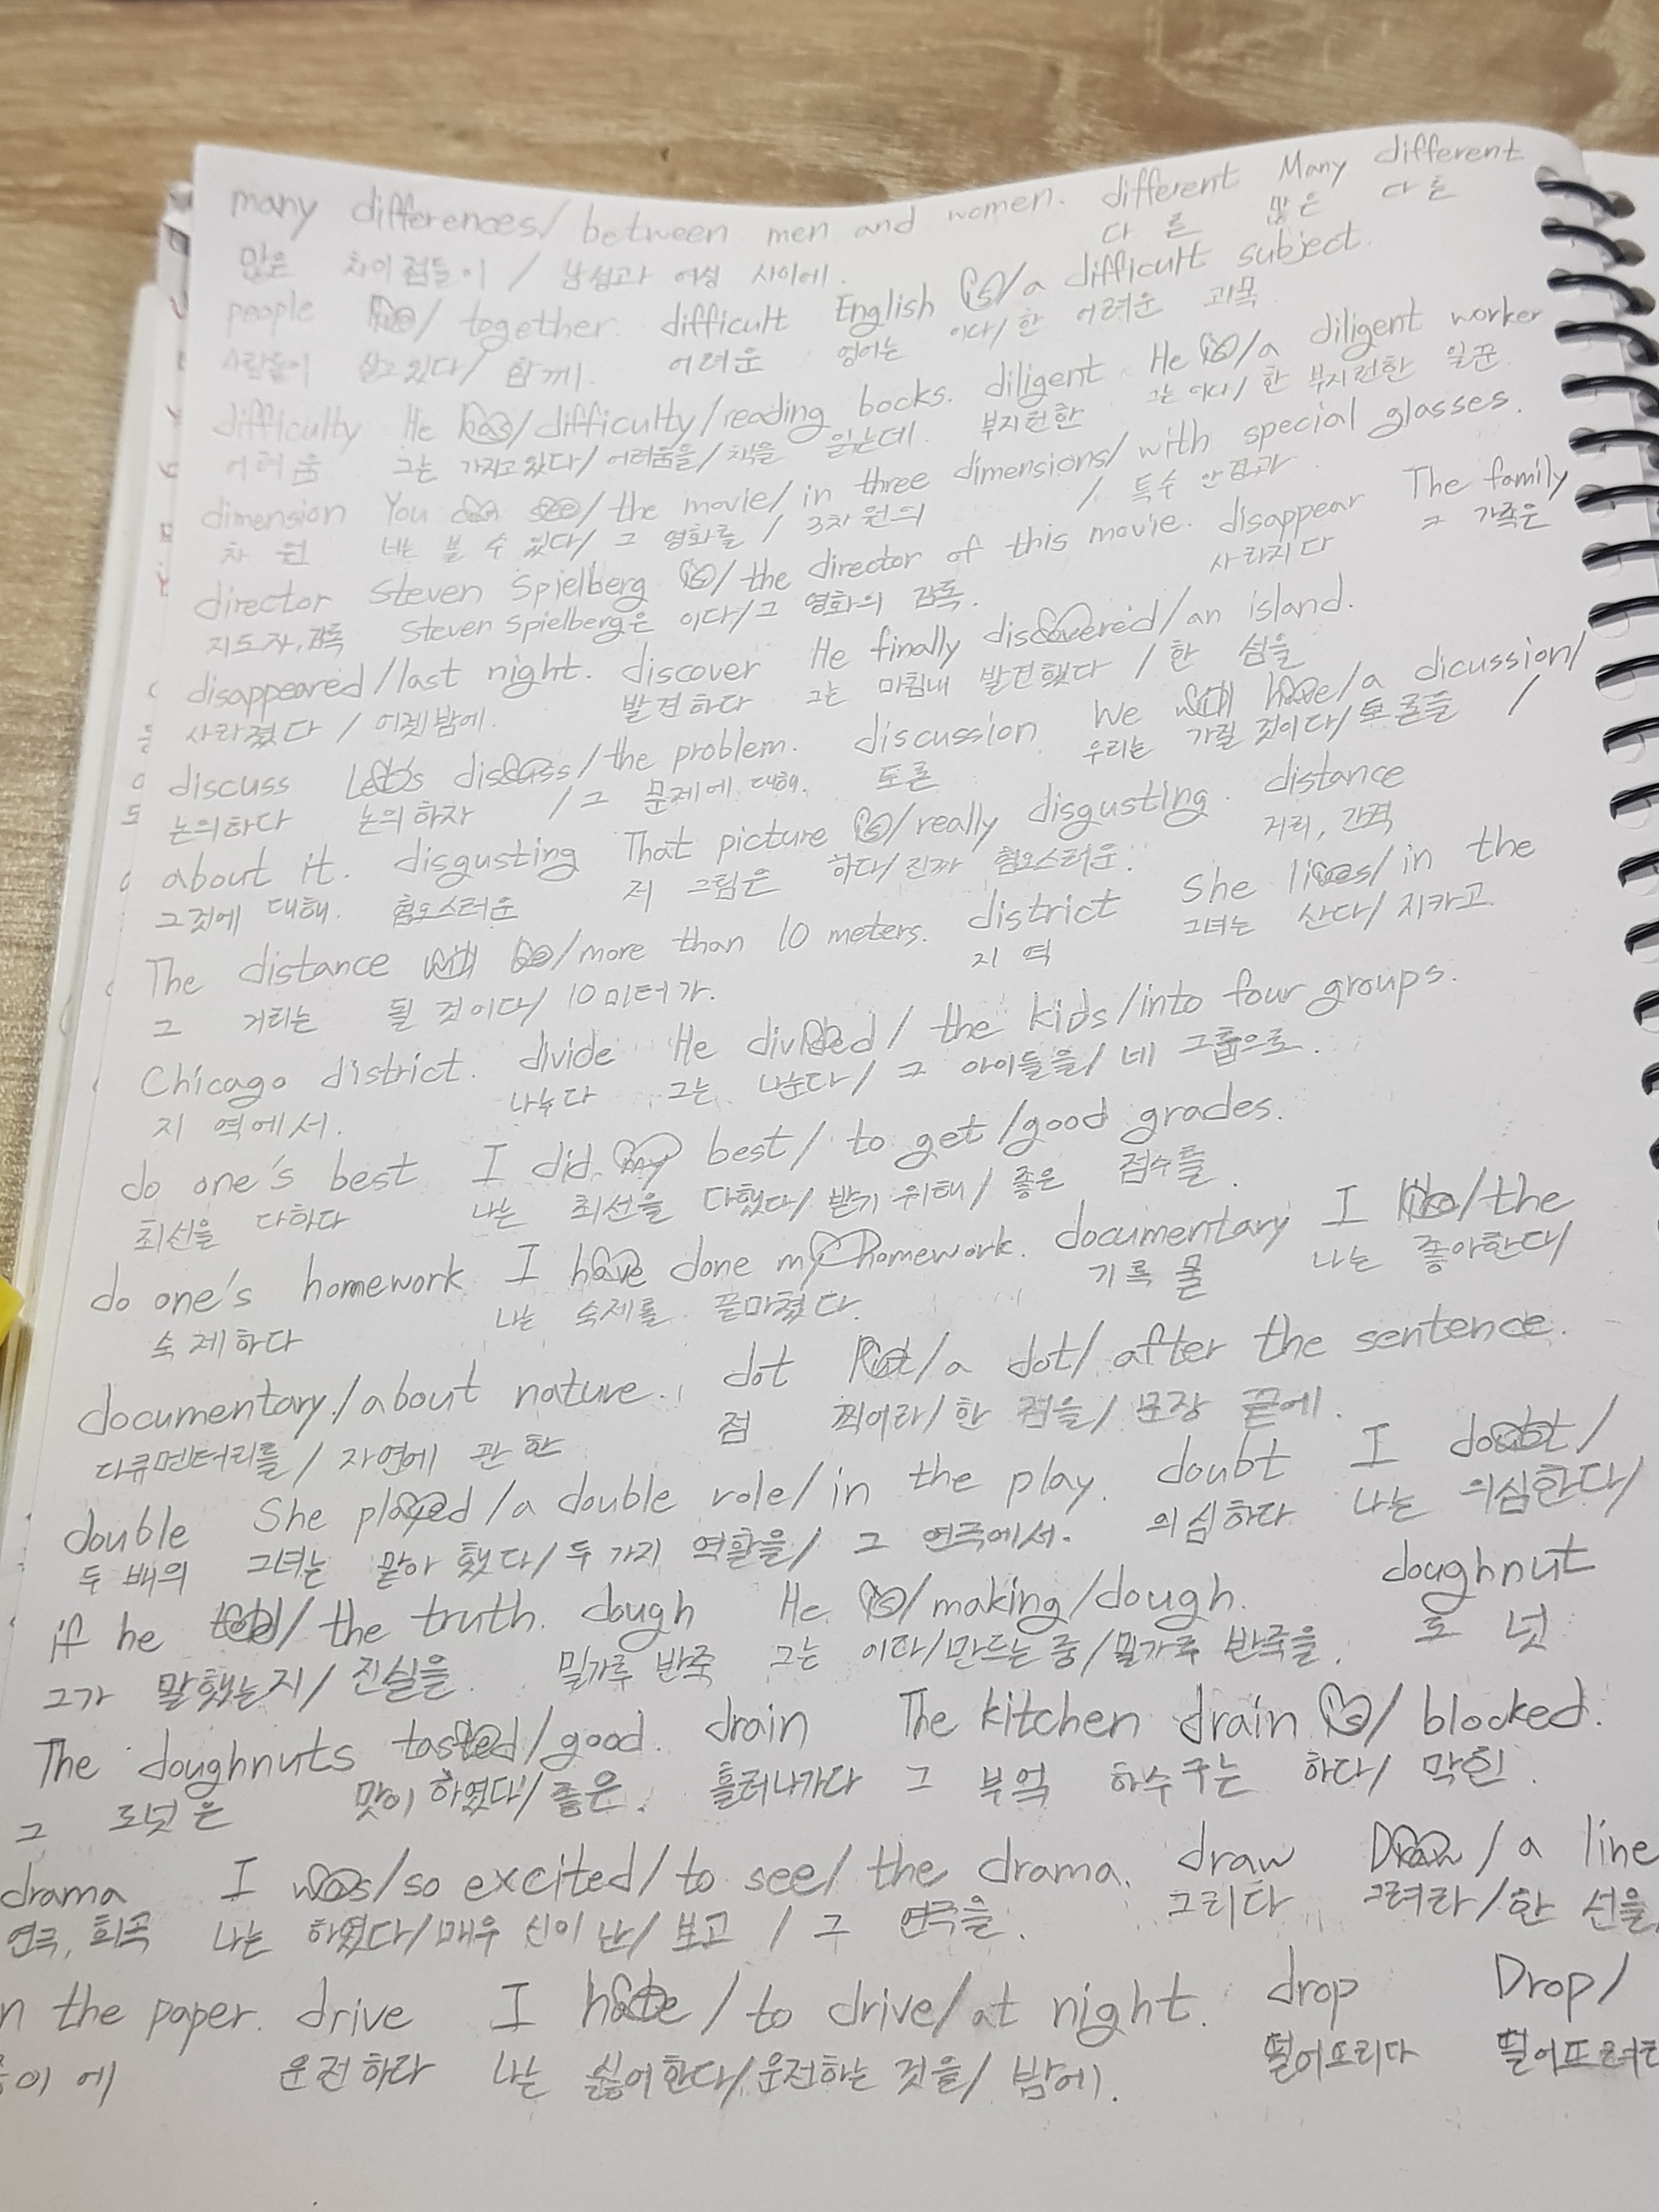 many differences/ between men and women. different Many different
많은 차이점들이 / 남성과 여성 사이에. 다른 많은 다른
people live/ together. difficult English is/a difficult subject.
사람들이 살고있다/ 함께. 어려운 영어는 이다/한 어려운 과목.
difficulty He has/difficulty/reading books. diligent He is/a diligent worker
어려움 그는 가지고있다/어려움을/책을 읽는데. 부지런한 그는 이다/한 부지런한 일꾼.
dimension You can see/the movie/in three dimensions/with special glasses.
차원 너는 볼 수 있다/ 그 영화를 / 3차원의 / 특수 안경과
director Steven Spielberg is/the director of this movie. disappear The family
지도자,감독 Steven Spielberg은 이다/그 영화의 감독. 사라지다 그 가족은
disappeared/last night. discover He finally discovered/an island.
사라졌다 / 어젯밤에. 발견하다 그는 마침내 발견했다 / 한 섬을
discuss Let's discuss/the problem. discussion We will have/a dicussion/
논의하다 논의하자 /그 문제에 대해. 토론 우리는 가질 것이다/토론을 /
about it. disgusting That picture is/really disgusting. distance
그것에 대해. 혐오스러운 저 그림은 하다/진짜 혐오스러운. 거리, 간격
The distance will be/more than 10 meters. district She lives/in the
그 거리는 될 것이다/ 10미터가. 지역 그녀는 산다/ 지카고
Chicago district. divide He divided/ the kids/into four groups.
지역에서. 나누다 그는 나눈다/ 그 아이들을/ 네 그룹으로.
do one's best I did my best/ to get/good grades.
최선을 다하다 나는 최선을 다했다/ 받기 위해/ 좋은 점수를.
do one's homework I have done my homework. documentary I like/the
숙제하다 나는 숙제를 끝마쳤다. 기록물 나는 좋아한다/
documentary/about nature. dot Put/a dot/ after the sentence.
다큐멘터리를/ 자연에 관한 점 찍어라/한 점을/ 문장 끝에.
double She played/a double role/in the play. doubt I doubt/
두 배의 그녀는 맡아 했다/두가지 역할을/ 그 연극에서. 의심하다 나는 의심한다/
if he told/the truth. dough He is/making/dough. doughnut
그가 말했는지/ 진실을. 밀가루 반죽 그는 이다/만드는 중/밀가루 반죽을. 도넛
The doughnuts tasted/good. drain The kitchen drain is/ blocked.
그 도넛은 맛이 하였다/좋은. 흘러나가다 그 부엌 하수구는 하다/ 막힌.
drama I was/so excited/to see/ the drama. draw Draw / a line
연극, 희곡 나는 하였다/매우 신이 난/ 보고 / 그 연극을. 그리다 그려라/한 선을
n the paper. drive I hate / to drive/at night. drop Drop/
종이에 운전하다 나는 싫어한다/운전하는 것을/ 밤에. 떨어뜨리다 떨어뜨려라